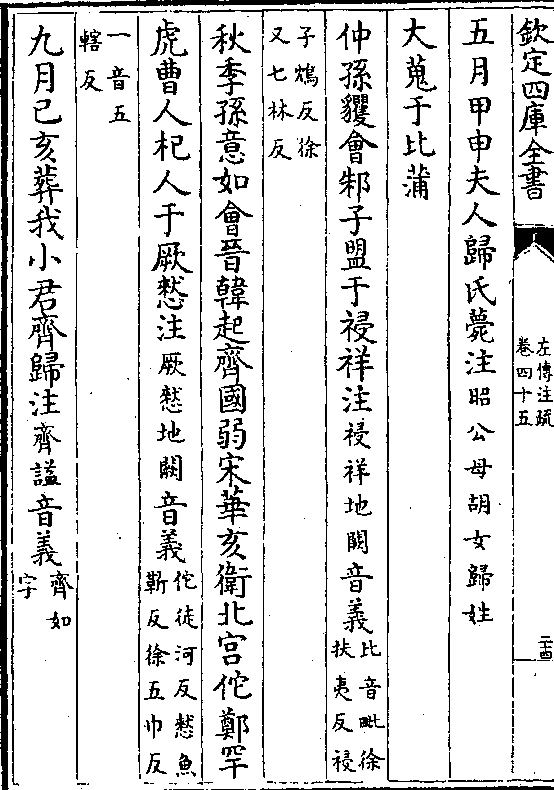 欽定四庫全書
左傳注疏
卷四十五
二十四
五月甲申夫人歸氏薨注昭公母胡女歸姓
大蒐于比蒲
仲孫貜會邾子盟于祲祥注祲祥地闕音義比音毗徐
扶夷反祲
子鴆反徐
又七林反
秋季孫意如會晉韓起齊國弱宋華亥衛北宮佗鄭罕
虎曹人杞人于厥憖注厥憖地闕音義佗徒河反憖魚
靳反徐五巾反
一音五
轄反
九月己亥葬我小君齊歸注齊諡音義齊如
字